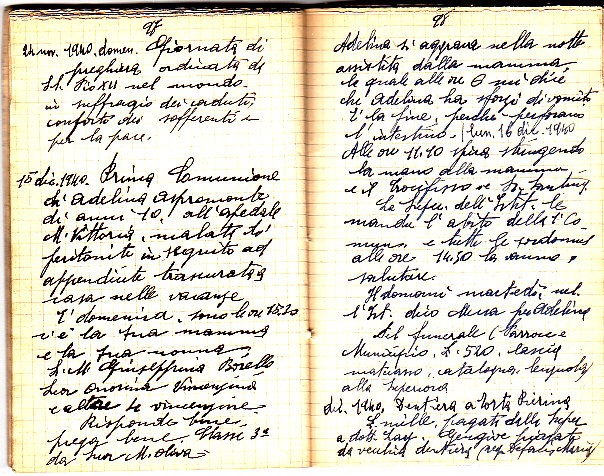 97
24 nov. 1940. domen. Giornata di
preghiera ordinata da
S.S. Pio XII nel mondo.
in suffragio dei caduti,
conforto dei sofferenti e
per la pace.
15 dic. 1940. Prima Comunione
di Adelina Aspromonte
di anni 10. all'ospedale
M. Vittoria, malata di
peritonite in seguito ad
appendicite trascurata a
casa nelle vacanze
È domenica. sono le ore 15.30
c'è la sua mamma
e la sua nonna,
S. M. Giuseppina Borello
Suor Onorina Vincenzina
e altre 4 vincenzine.
Risponde bene
prega bene. Classe 3ª
da Suor M.
98
Adelina si aggrava nella notte
assistita dalla mamma,
la quale alle ore 6 mi dice
che Adelina ha sforzi di vomito
È la fine, perché perforano
l'intestino. lun. 16 dic. 1940
Alle ore 11.10 spira stringendo
la mano alla mamma,
e il Crocifisso e
La Super. dell'Ist. le
manda l'abito della 1ª Co-
munione. e tutte le
alle ore 14.30 la vanno a
salutare.
Il domani martedì, nel-
l'Ist. dico Messa per Adelina
Nel funerale (Parroco e
Municipio. £. 520. cassa
alla Superiora
dic. 1940. Dentiera a Torta Pierina
£. mille, pagati dalla Super
a dott. Gengive
da vecchia dentiera